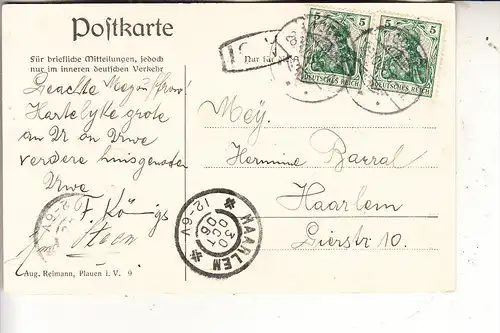 Postkarte
Für briefliche Mitteilungen, jedoch
nur im inneren deutschen Verkehr
Nur für
5 5
5 5
DEUTSCHES REICH
DEUTSCHES REICH
Geachte Mejuffrouw!
Hartelyke groete
an U en Uwe
verdere huisgenoten
Uwe
F. Königs
Mej.
Hermine Barral
Haarlem
Lierstr 10.
HAARLEM
30 OCT 06
12-6V
Aug. Reimann, Plauen i. V. 9